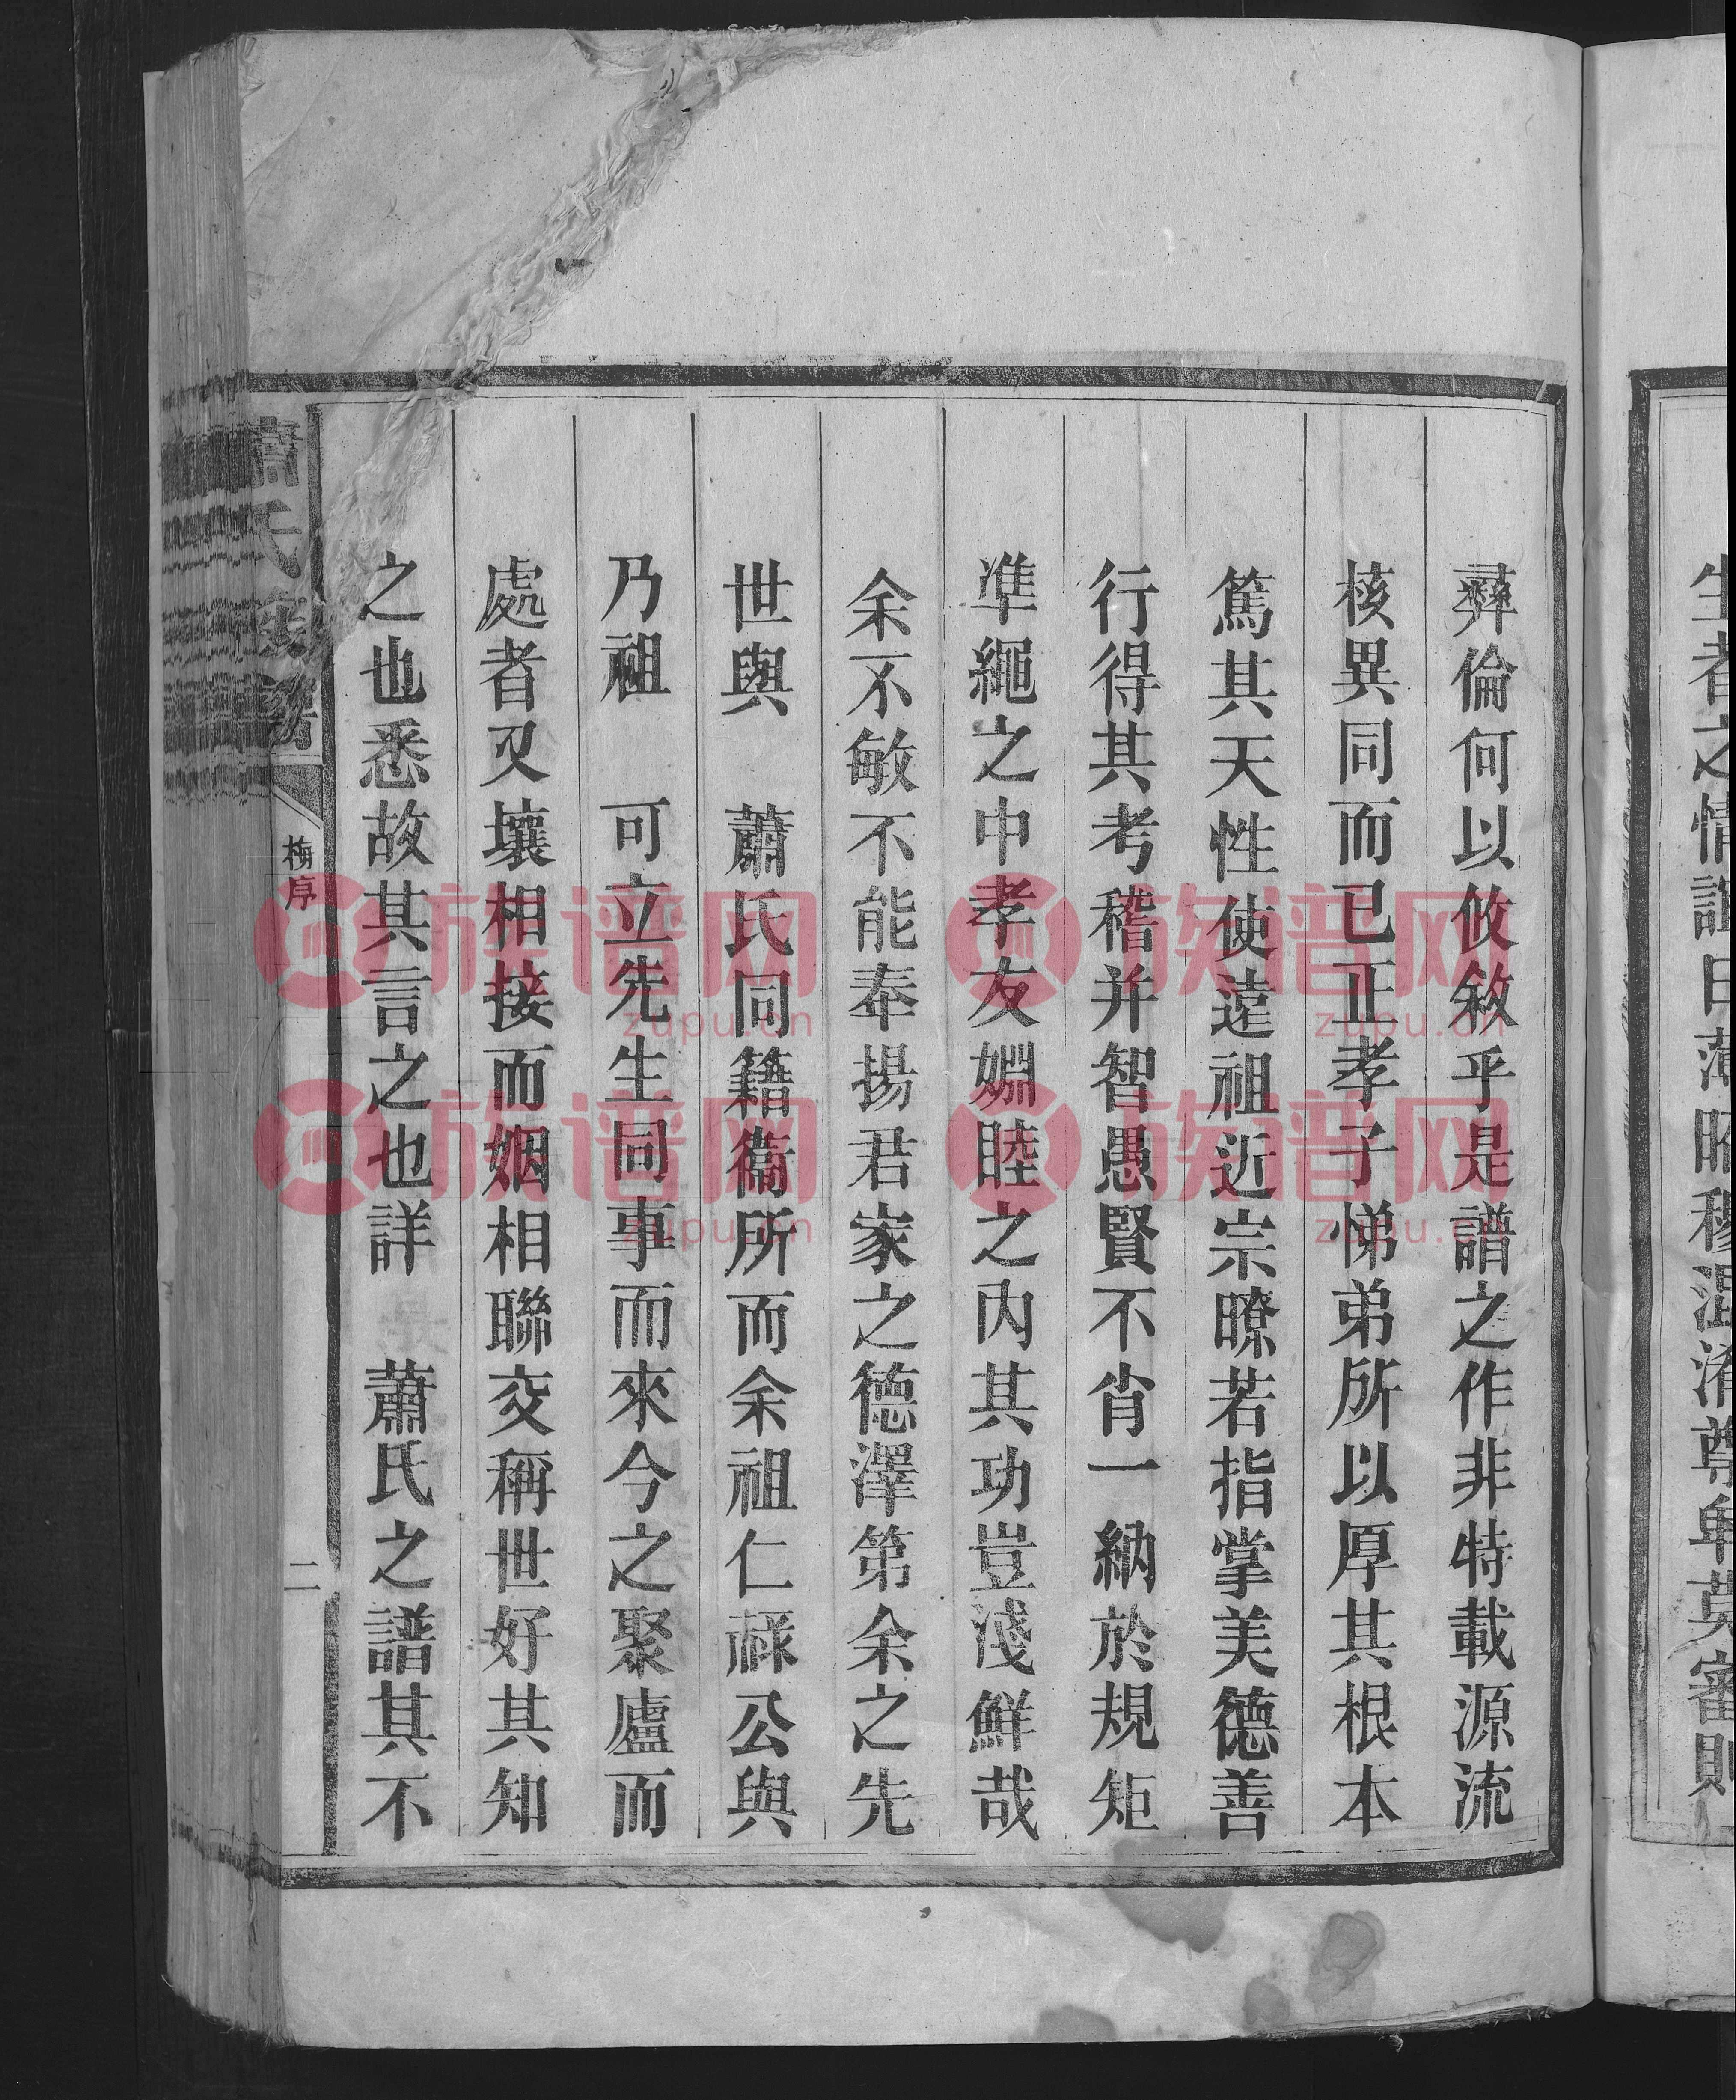 生者之情誼日薄昭穆混淆尊卑莫審則
彝倫何以攸敘乎是譜之作非特載源流
核異同而已正孝子悌弟所以厚其根本
篤其天性使遠祖近宗暸若指掌美德善
行得其考稽并智愚賢不肖一納於規矩
準繩之中孝友婣睦之內其功豈淺鮮哉
余不敏不能奉揚君家之德澤第余之先
世與　蕭氏同籍衞所而余祖仁祿公與
乃祖　可立先生同事而來今之聚廬而
處者又壤相接而姻相聯交稱世好其知
之也悉故其言之也詳　蕭氏之譜其不
蕭氏家譜
梅序
二
族谱网
zupu.cn
族谱网
zupu.cn
族谱网
zupu.cn
族谱网
zupu.cn